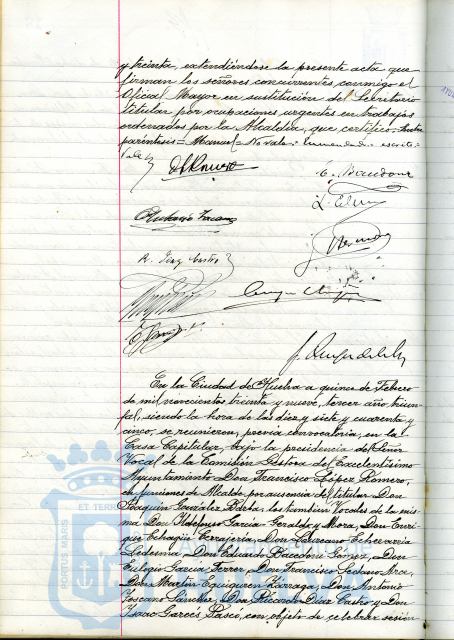 y treinta, extendiéndose la presente acta que
firman los señores concurrentes, conmigo el
Oficial Mayor en sustitución del Secretario
titular por ocupaciones urgentes en trabajos
ordenados por la Alcaldía, que certifico= Entre
paréntesis = Manuel = No vale = Enmendado = escrito =
Vale
R. Díaz Castro
En la Ciudad de Huelva a quince de Febrero
de mil novecientos treinta y nueve, tercer año triun-
fal, siendo la hora de las diez y siete y cuarenta y
cinco, se reunieron, previa convocatoria, en la
Casa Capitular, bajo la presidencia del Señor
Vocal de la Comisión Gestora del Excelentísimo
Ayuntamiento Don Francisco López Romero,
en funciones de Alcalde por ausencia del titular Don
Joaquín González Barba, los también Vocales de la mis-
ma Don Ildefonso García Geraldo y Mora, Don Enri-
que Echagüe Cerrajería, Don Laureano Echevarría
Ledesma, Don Eduardo Bacedoni Gómez, Don
Eulogio García Ferrer, Don Francisco Sedano Arce,
Don Martín Eguiguren Larraga, Don Antonio
Toscano Sánchez, Don Ricardo Díaz Castro y Don
Isaac Garcés Pascé, con objeto de celebrar sesión
PORTUS MARIS
ET TERR